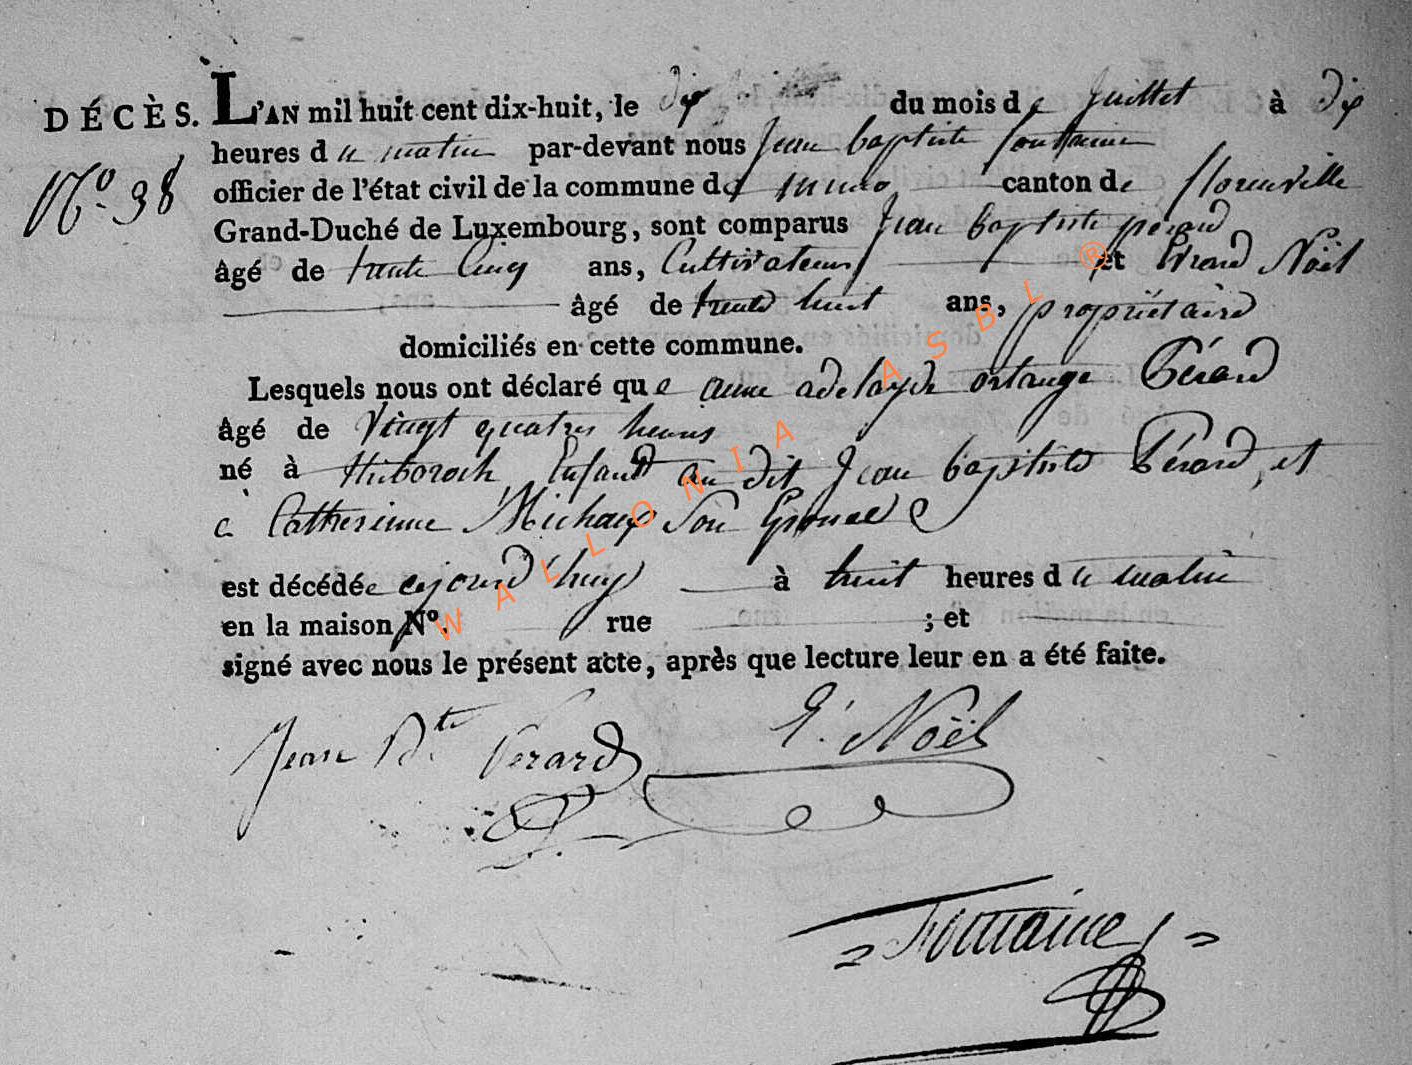 DÉCÈS. L'AN mil huit cent dix-huit, le dix du mois de juillet à dix
N.º 38 heures du matin par-devant nous Jean baptiste fontaine
officier de l'état civil de la commune de canton de florenville
Grand-Duché de Luxembourg, sont comparus Jean baptiste pérard
âgé de trente Cinq ans, Cultivateur et Erard Noël
âgé de trente huit ans, propriétaire
domiciliés en cette commune.
Lesquels nous ont déclaré que anne adelayde ortange Pérard
âgé de Vingt quatre heures
né à Enfant du dit Jean baptiste Pérard, et
Catherinne Michaux Son Epouse
est décédée cejourd'huy à huit heures du matin
en la maison Nº. rue ; et
signé avec nous le présent acte, après que lecture leur en a été faite.
Jean Bte Perard E. Noël
Fontaine
WALLONIA ASBL ®